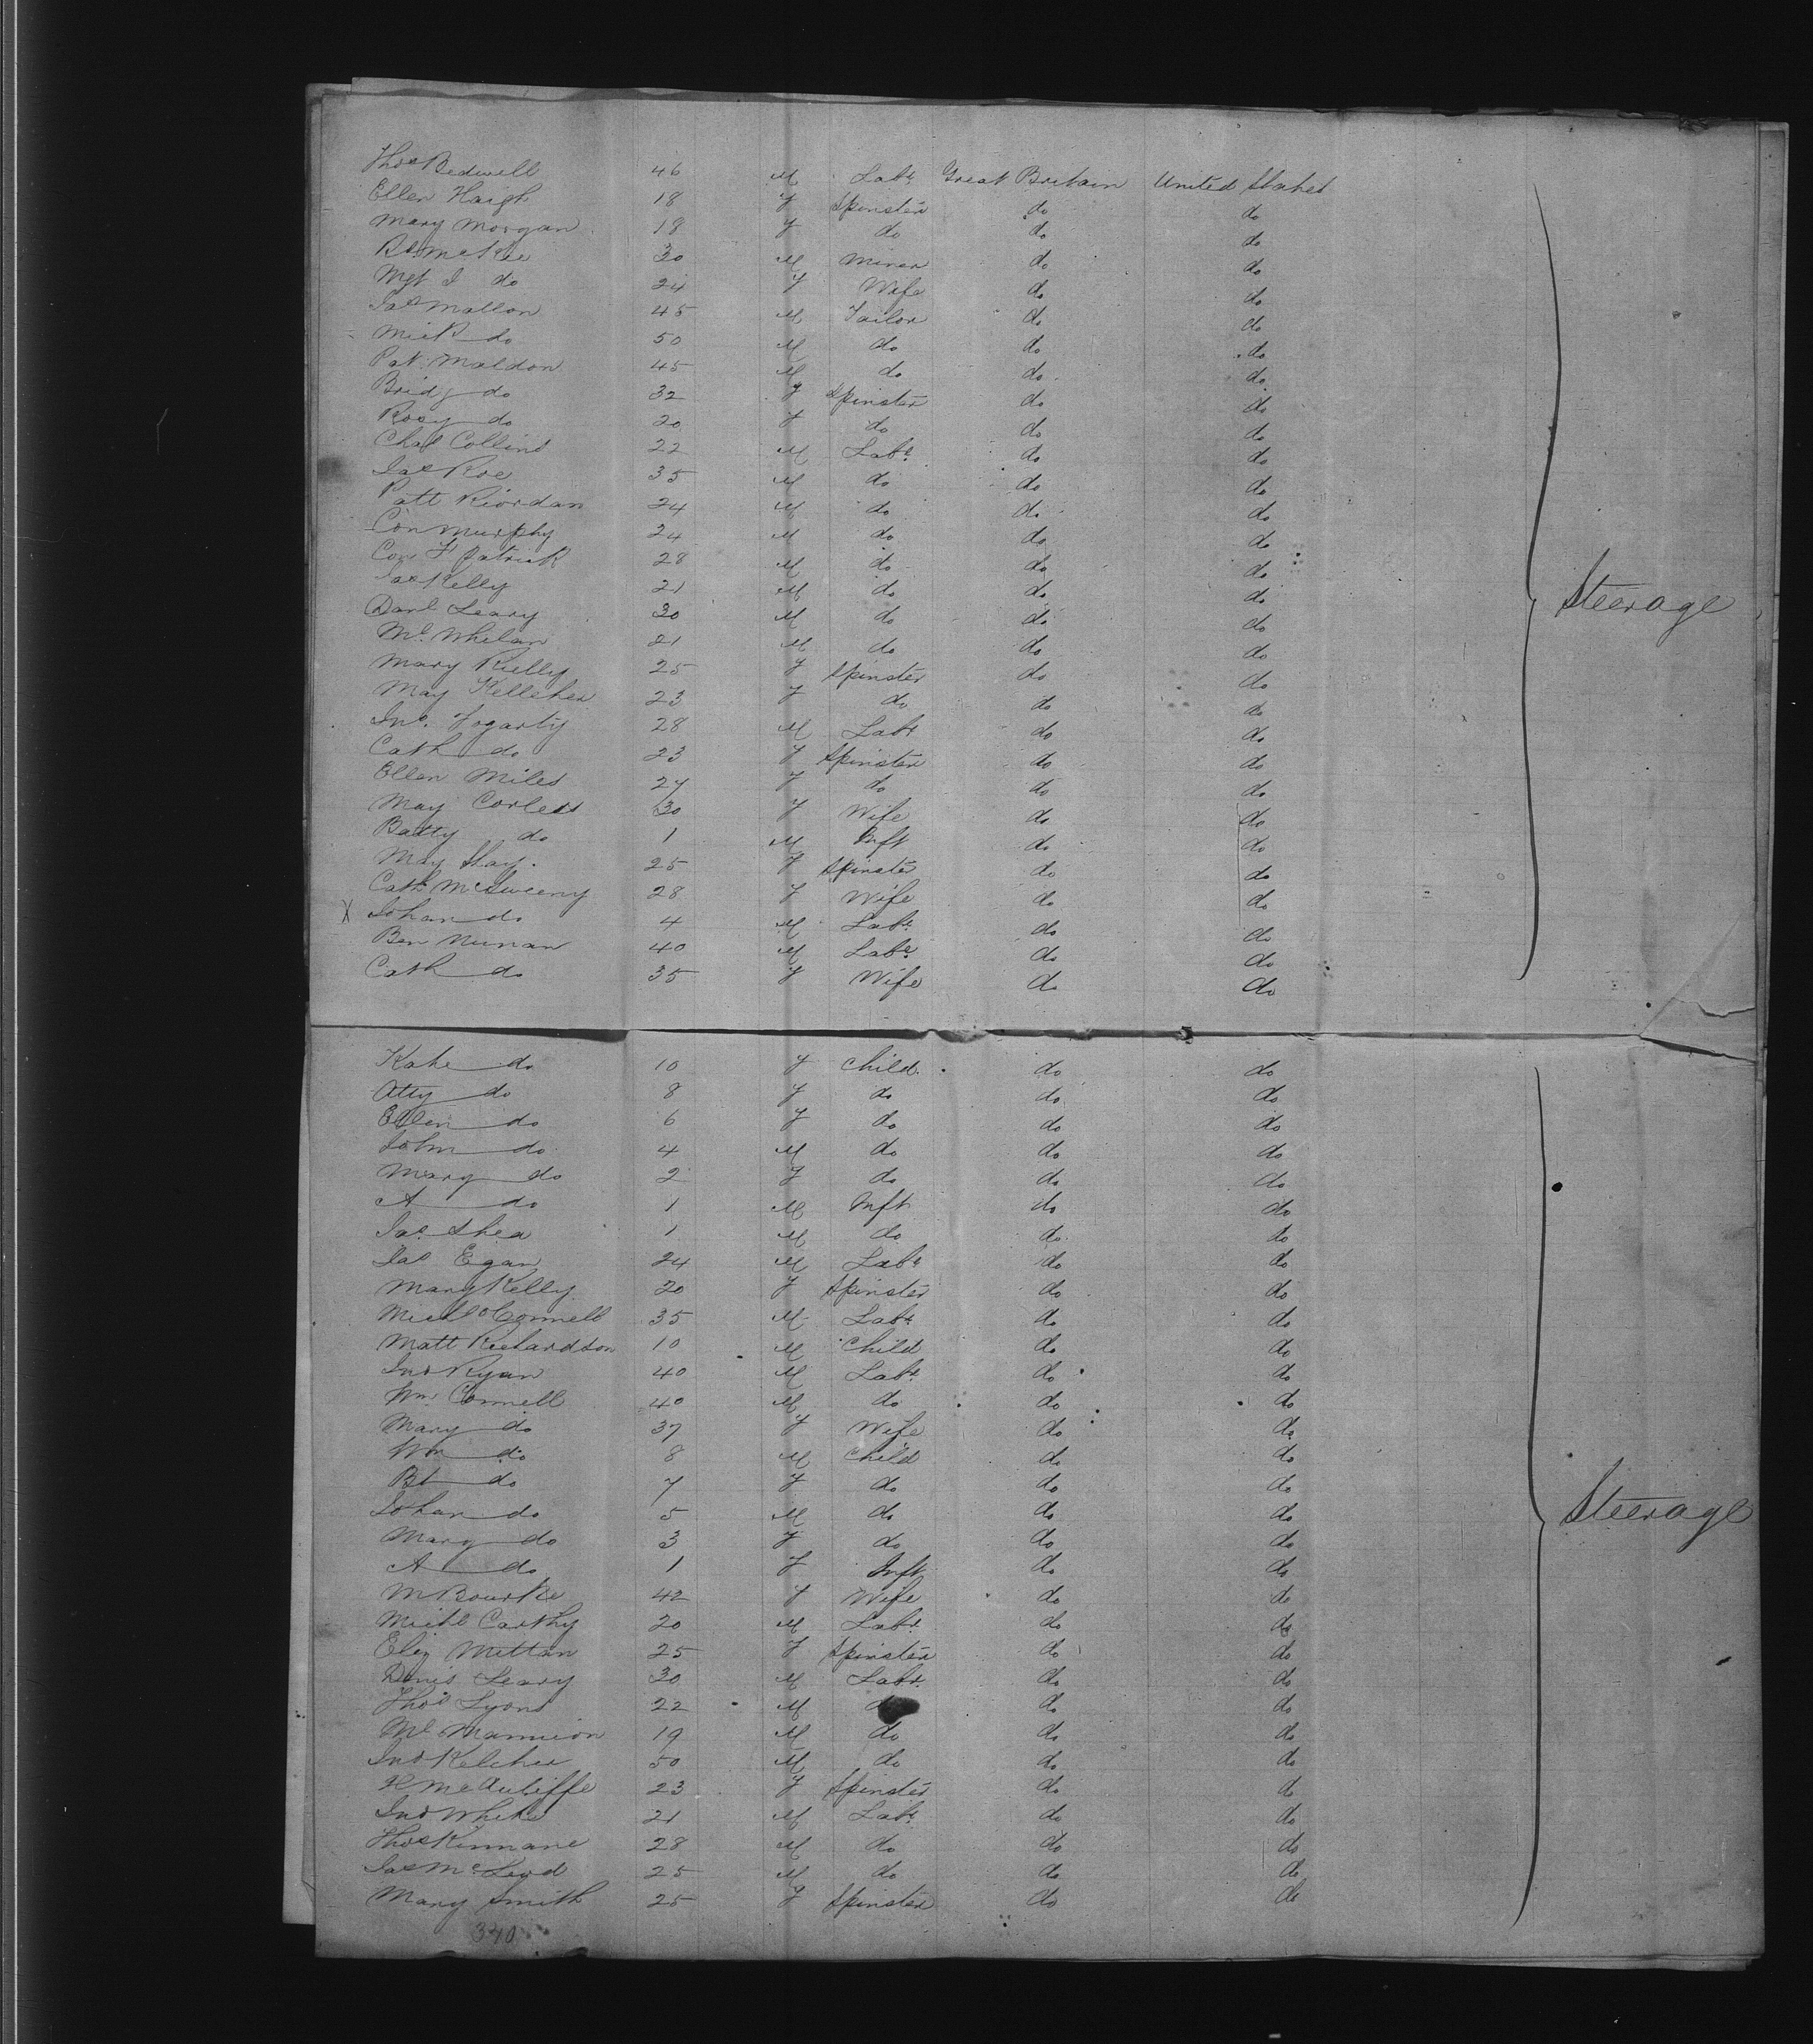 Thos Bedwell 46 M Labr Great Britain United States
Ellen Haigh 18 F Spinster do do
Mary Morgan 18 F do do do
Rt McKee 30 M Miner do do
Mgt J do 24 F Wife do do
Jas Mallon 45 M Tailor do do
Mick do 50 M do do do
Pat Maldon 45 M do do do
Bridg do 32 F Spinster do do
Rosy do 20 F do do do
Chas Collins 22 M Labr do do
Jas Roe 35 M do do do
Patt Riordan 24 M do do do
Con Murphy 24 M do do do
Con Fpatrick 28 M do do do
Jas Kelly 21 M do do do
Danl Leary 30 M do do do
Ml Whelan 21 M do do do
Steerage
Mary Rielly 25 F Spinster do do
May Kelleher 23 F do do do
Jno. Fogarty 28 M Labr do do
Cath do 23 F Spinster do do
Ellen Miles 27 F do do do
May Corless 30 F Wife do do
Batty do 1 M Inft do do
May Shay. 25 F Spinster do do
Cath McSweeny 28 F Wife do do
X Johan do 4 M Labr do do
Ben Nunan 40 M Labr do do
Cath do 35 F Wife do do
Kate do 10 F Child do do
Atty do 8 F do do do
Ellen do 6 F do do do
John do 4 M do do do
Mary do 2 F do do do
A do 1 M Inft do do
Jas. Shea 1 M do do do
Jas Egan 24 M Labr do do
Mary Kelly 20 F Spinster do do
Michl OConnell 35 M Labr do do
Matt Richardson 10 M Child do do
Jno Ryan 40 M Labr do do
Wm Connell 40 M do do do
Mary do 37 F Wife do do
Wm do 8 M Child do do
Bt do 7 F do do do
Johan do 5 M do do do
Steerage
Mary do 3 F do do do
A do 1 F Inft do do
M Bourke 42 F Wife do do
Michl Carthy 20 M Labr do do
Eliz Mittan 25 F Spinster do do
Denis Leary 30 M Labr do do
Thos Lyons 22 M do do do
Ml Mannion 19 M do do do
Jno Kelcher 50 M do do do
H McAuliffe 23 F Spinster do do
Jno White 21 M Labr do do
Thos Kinnane 28 M do do do
Jas McLeod 25 M do do do
Mary Smith 25 F Spinster do do
340